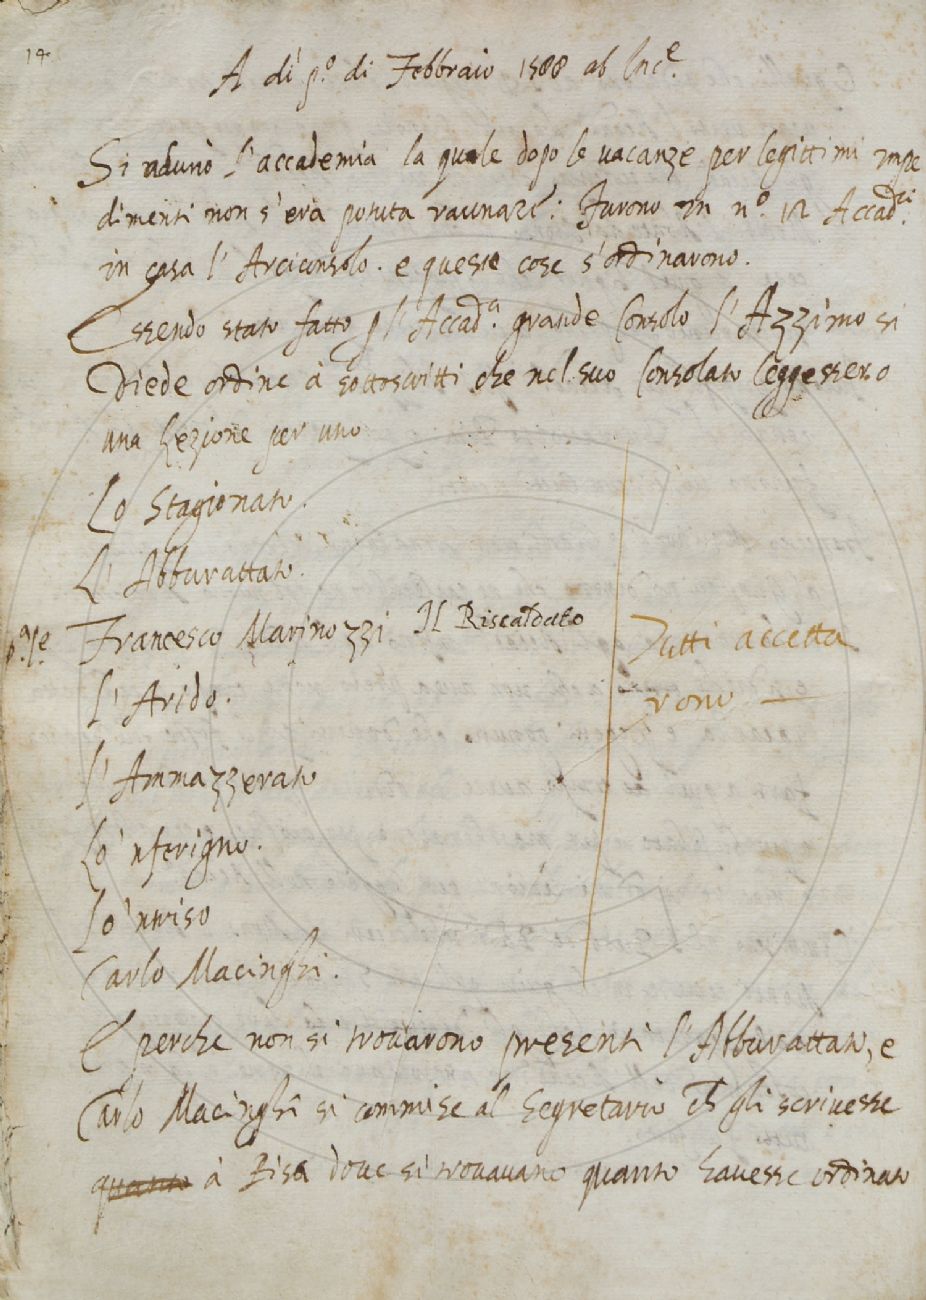 14
A di pº di Febbraio 1588 ab Incᵉ.
Si adunò l'accademia la quale dopo le vacanze per legittimi impe
dimenti non s'era potuta raunare: Furono in nº. 12 Accadᶜⁱ.
in casa l'Arciconsolo. e queste cose s'ordinarono.
Essendo stato fatto p l'Accadª. grande Consolo l'Azzimo si
Diede ordine à sottoscritti che nel suo Consolato leggessero
una Lezione per uno
Lo Stagionato.
L'Abburattato.
Francesco Marinozzi Il Riscaldato
l'Arido.
l'Ammazzerato
Lo 'nferigno.
Lo 'ntriso
Carlo Macinghi.
Tutti accetta
rono —
E perche non si trovarono presenti l'Abburattato, e
Carlo Macinghi si commise al Segretario ch gli scrivesse
quanto à Pisa dove si trovavano quanto havesse ordinato